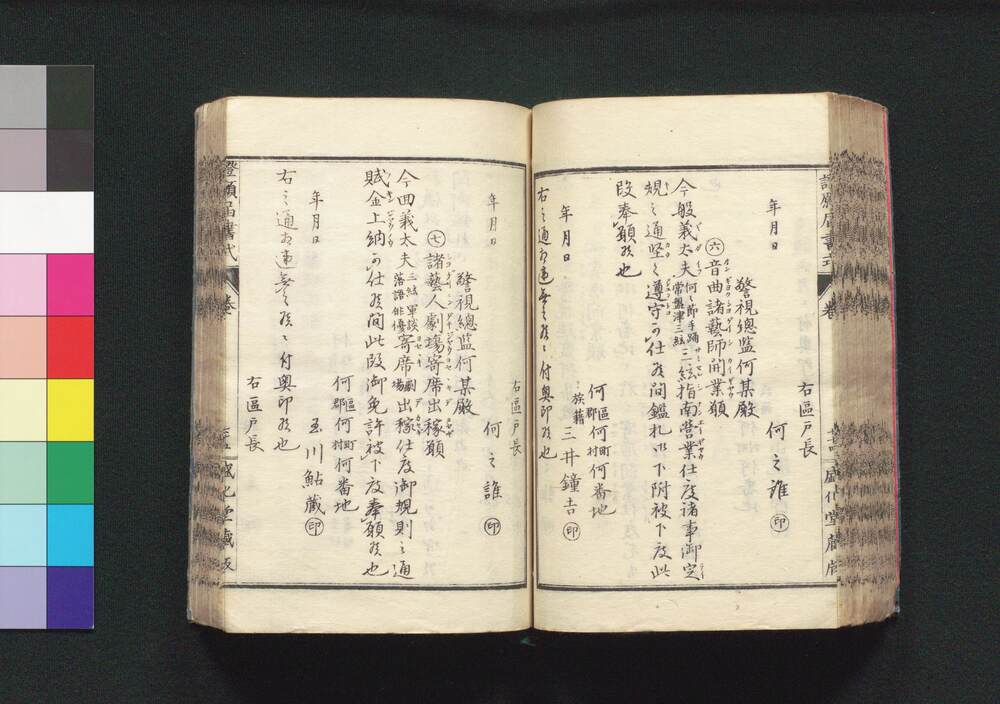 右區戸長
年月日
何之誰 ㊞
警視總監何某殿
㊅音曲諸藝師開業願
今般義太夫何々節手踊常盤津三絃三絃指南營業仕度諸事御定
規之通堅ク遵守可仕候間鑑札御下附被下度此
段奉願候也
何區郡何町村何番地
族籍 三井鐘吉 ㊞
年月日
右之通相違無之候ニ付奥印候也
右區戸長
何之誰 ㊞
年月日
警視總監何某殿
㊆諸藝人劇場寄席出稼願
今回義太夫三絃軍談落語俳優寄席劇場出稼仕度御規則之通
賦金上納可仕候間此段御免許被下度奉願候也
何區郡何町村何番地
玉川鮎藏 ㊞
年月日
右之通相違無之候ニ付奥印候也
右區戸長
盛化堂藏版